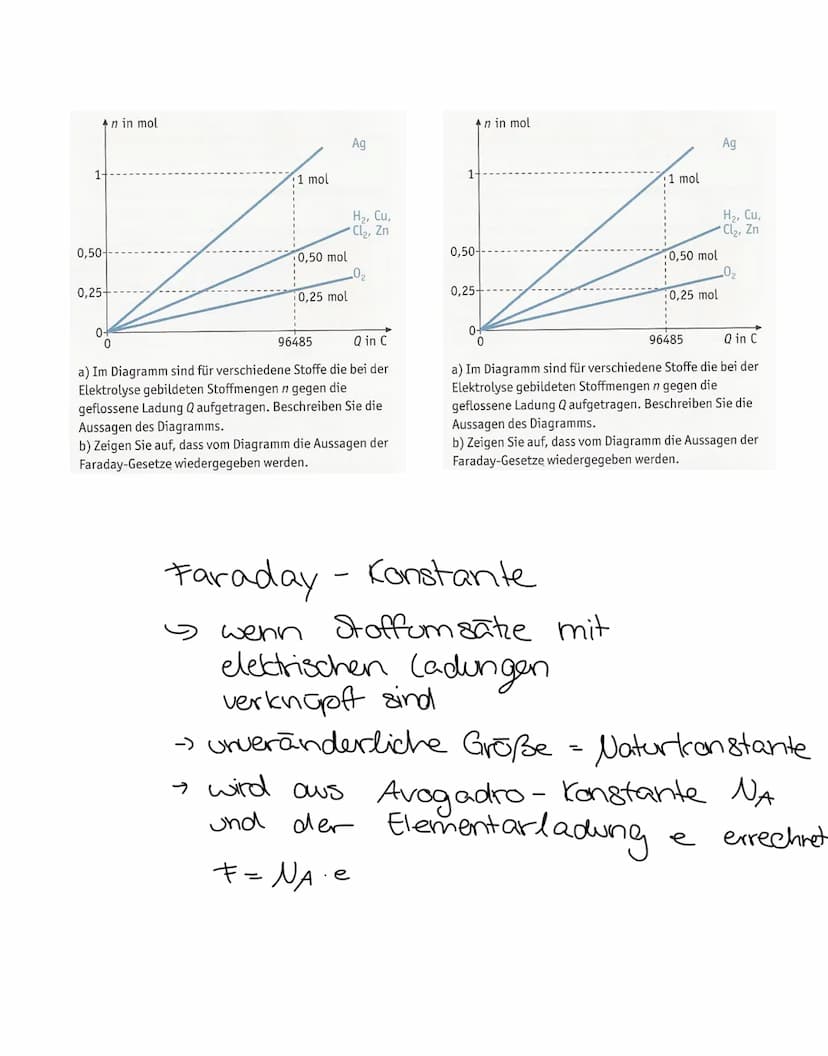 n in mol
Ag
1
1 mol
H₂, Cu,
Cl₂, Zn
0,50
0,50 mol
O₂
0,25
0,25 mol
0
0
96485
Q in C
a) Im Diagramm sind für verschiedene Stoffe die bei der
Elektrolyse gebildeten Stoffmengen n gegen die
geflossene Ladung Q aufgetragen. Beschreiben Sie die
Aussagen des Diagramms.
b) Zeigen Sie auf, dass vom Diagramm die Aussagen der
Faraday-Gesetze wiedergegeben werden.
n in mol
Ag
1
1 mol
H₂, Cu,
Cl₂, Zn
0,50
0,50 mol
O₂
0,25
0,25 mol
0
0
96485
Q in C
a) Im Diagramm sind für verschiedene Stoffe die bei der
Elektrolyse gebildeten Stoffmengen n gegen die
geflossene Ladung Q aufgetragen. Beschreiben Sie die
Aussagen des Diagramms.
b) Zeigen Sie auf, dass vom Diagramm die Aussagen der
Faraday-Gesetze wiedergegeben werden.
Faraday - Konstante
↪ wenn Stoffumsätze mit
elektrischen Ladungen
verknüpft sind
→ unveränderliche Größe = Naturkonstante
→ wird aus Avogadro - Konstante N_A
und der Elementarladung e errechnet
F = N_A · e